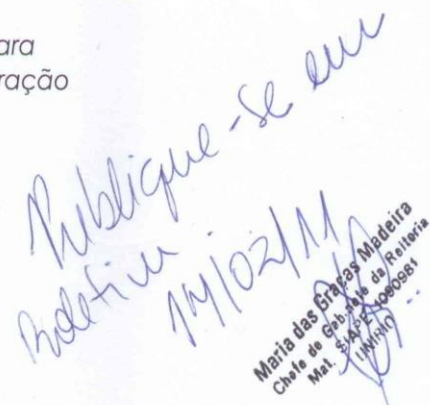 ara
ração
Publique-se em
Boletim.
14/02/11
Maria das Graças Madeira
Chefe de Gabinete da Reitoria
Mat. SIAPE 1090981
UNIRIO